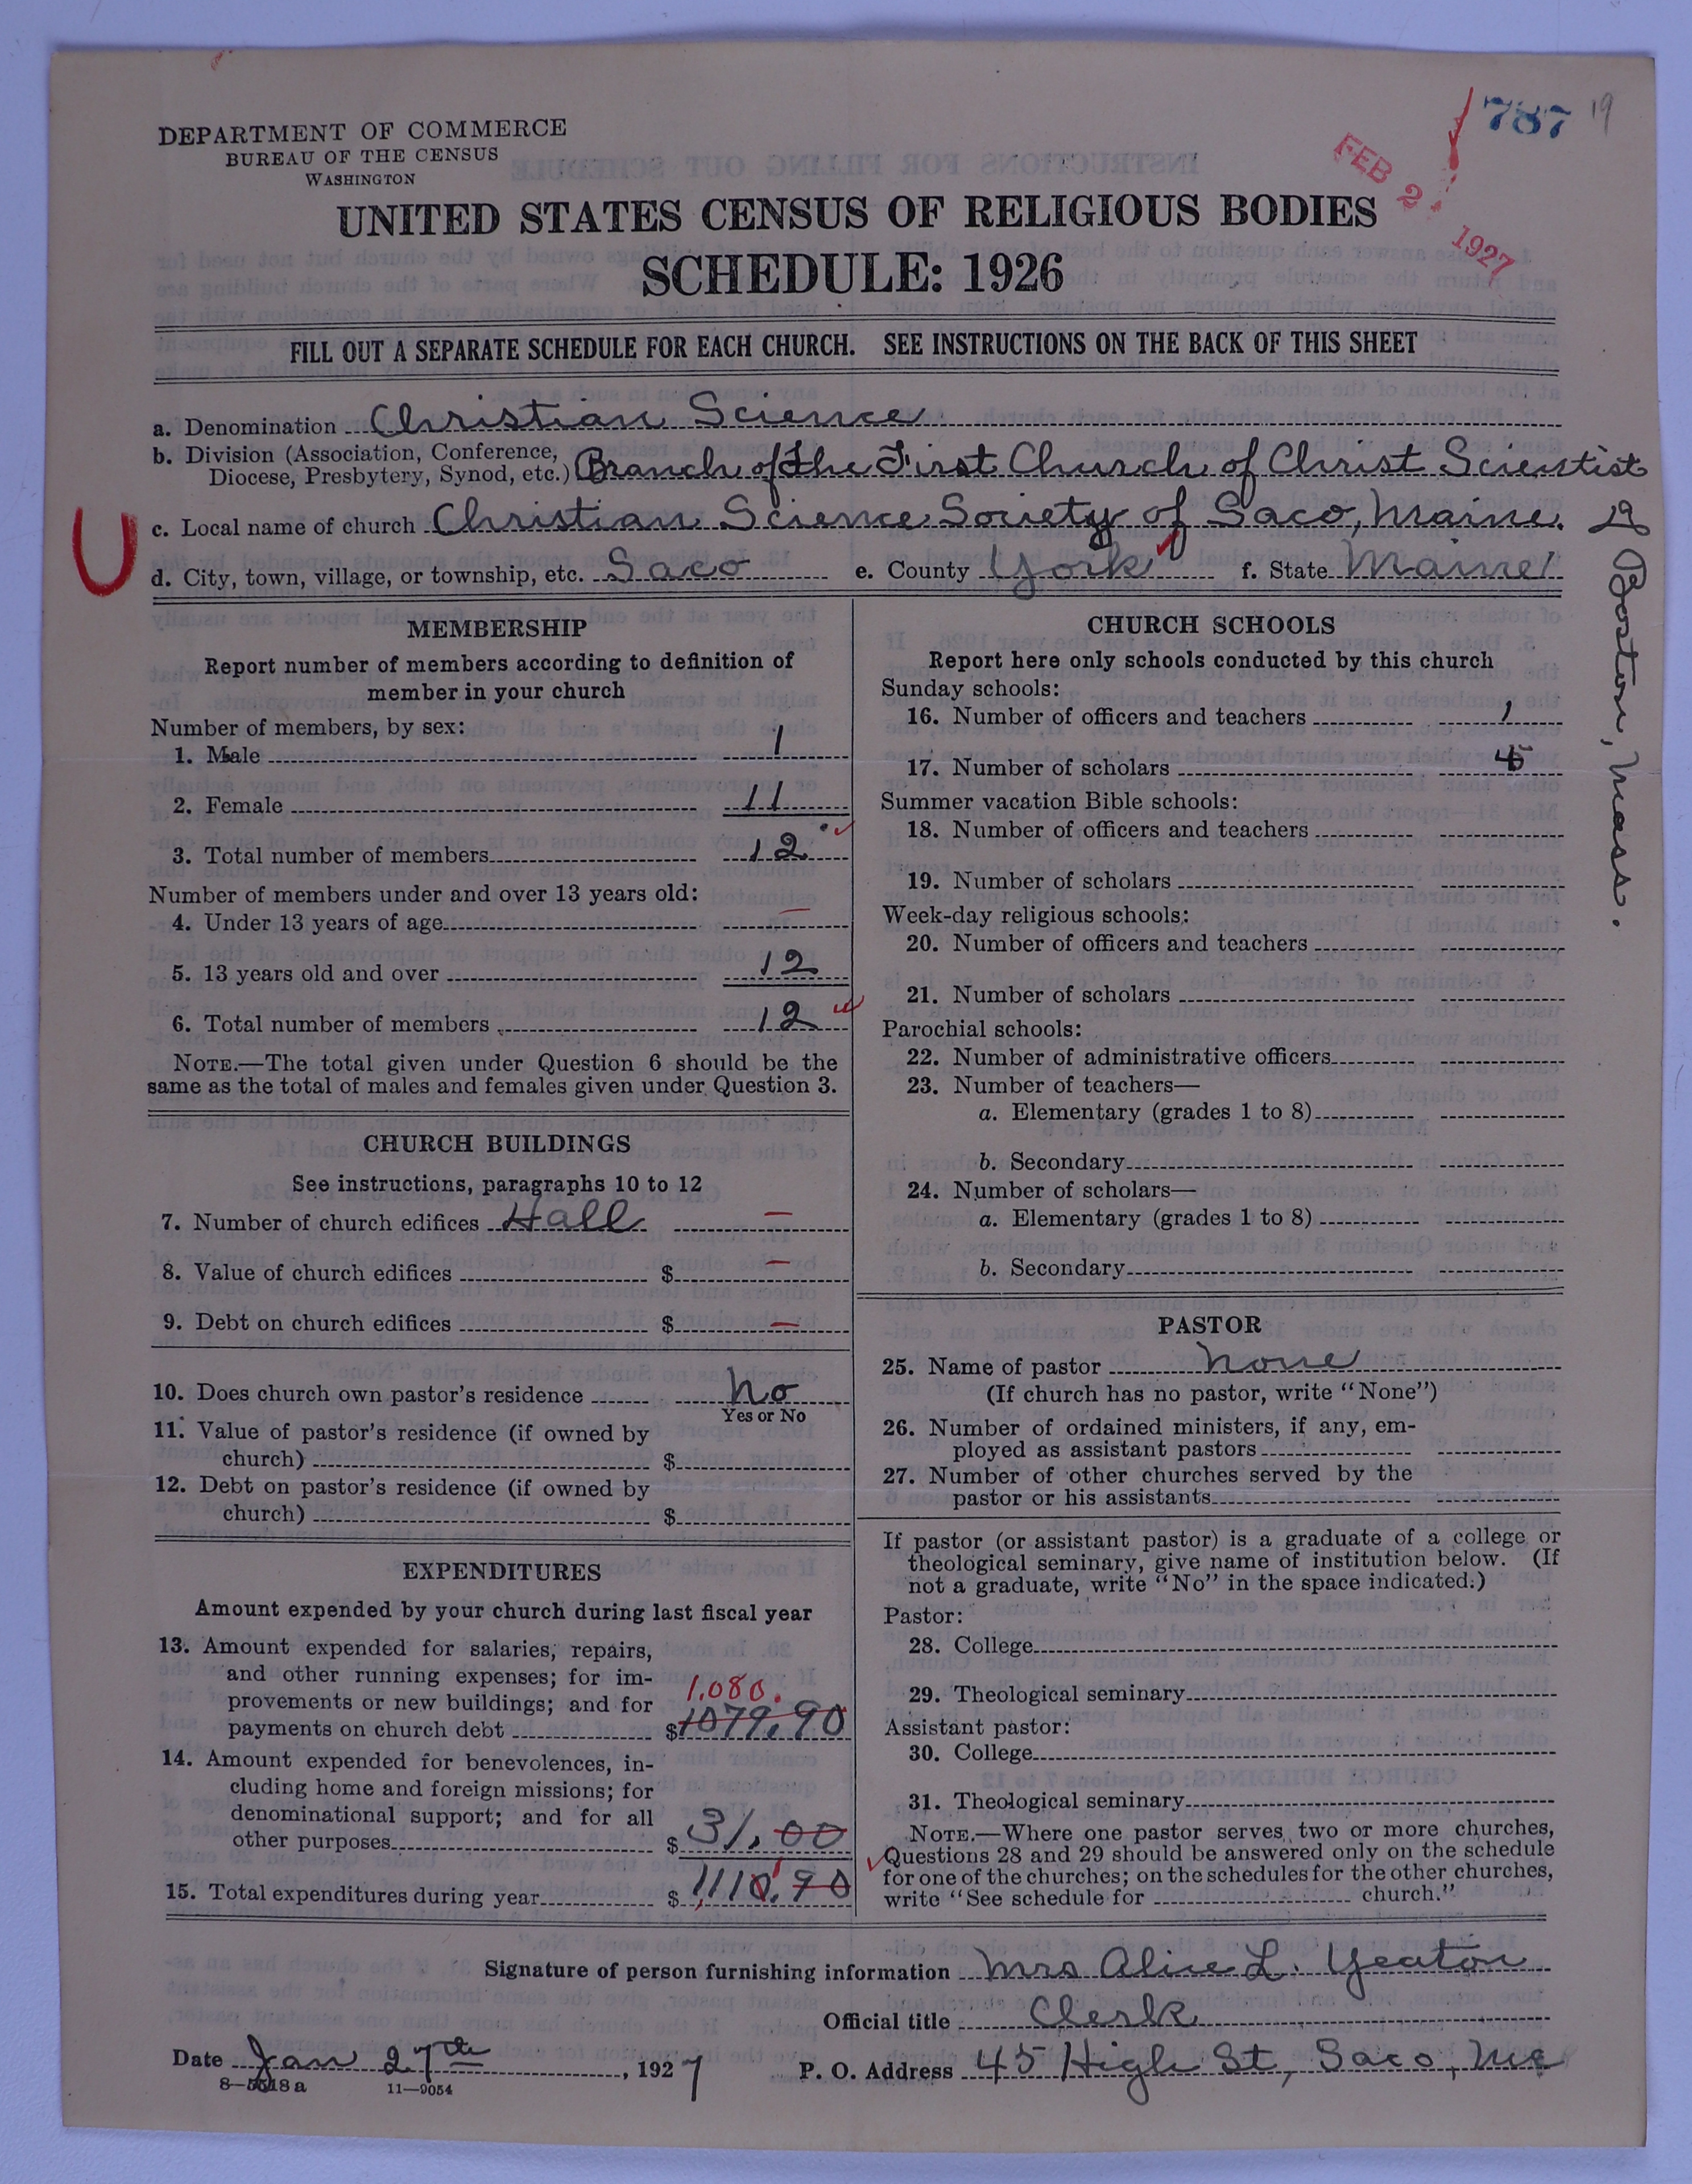 787 19
FEB 2 1927
DEPARTMENT OF COMMERCE
BUREAU OF THE CENSUS
WASHINGTON
UNITED STATES CENSUS OF RELIGIOUS BODIES
SCHEDULE: 1926
FILL OUT A SEPARATE SCHEDULE FOR EACH CHURCH. SEE INSTRUCTIONS ON THE BACK OF THIS SHEET
a. Denomination Christian Science
b. Division (Association, Conference,
Diocese, Presbytery, Synod, etc.) Branch of The First Church of Christ Scientist
of Boston, Mass.
c. Local name of church Christian Science Society of Saco, Maine.
d. City, town, village, or township, etc. Saco e. County York f. State Maine
MEMBERSHIP
Report number of members according to definition of
member in your church
Number of members, by sex:
1. Male 1
2. Female 11
3. Total number of members 12
Number of members under and over 13 years old:
4. Under 13 years of age —
5. 13 years old and over 12
6. Total number of members 12
NOTE.—The total given under Question 6 should be the
same as the total of males and females given under Question 3.
CHURCH BUILDINGS
See instructions, paragraphs 10 to 12
7. Number of church edifices Hall —
8. Value of church edifices $ —
9. Debt on church edifices $ —
10. Does church own pastor's residence No
Yes or No
11. Value of pastor's residence (if owned by
church) $
12. Debt on pastor's residence (if owned by
church) $
EXPENDITURES
Amount expended by your church during last fiscal year
13. Amount expended for salaries, repairs,
and other running expenses; for im-
provements or new buildings; and for 1,080.
payments on church debt $1079.90
14. Amount expended for benevolences, in-
cluding home and foreign missions; for
denominational support; and for all
other purposes $31.00
15. Total expenditures during year $1110.90
CHURCH SCHOOLS
Report here only schools conducted by this church
Sunday schools:
16. Number of officers and teachers 1
17. Number of scholars
Summer vacation Bible schools:
18. Number of officers and teachers
19. Number of scholars
Week-day religious schools:
20. Number of officers and teachers
21. Number of scholars
Parochial schools:
22. Number of administrative officers
23. Number of teachers—
a. Elementary (grades 1 to 8)
b. Secondary
24. Number of scholars—
a. Elementary (grades 1 to 8)
b. Secondary
PASTOR
25. Name of pastor None
(If church has no pastor, write "None")
26. Number of ordained ministers, if any, em-
ployed as assistant pastors
27. Number of other churches served by the
pastor or his assistants
If pastor (or assistant pastor) is a graduate of a college or
theological seminary, give name of institution below. (If
not a graduate, write "No" in the space indicated.)
Pastor:
28. College
29. Theological seminary
Assistant pastor:
30. College
31. Theological seminary
NOTE.—Where one pastor serves two or more churches,
Questions 28 and 29 should be answered only on the schedule
for one of the churches; on the schedules for the other churches,
write "See schedule for church."
Signature of person furnishing information Mrs Alice L. Yeaton
Official title Clerk
Date Jan 27th, 1927 P. O. Address 45 High St, Saco, Me
11—9054